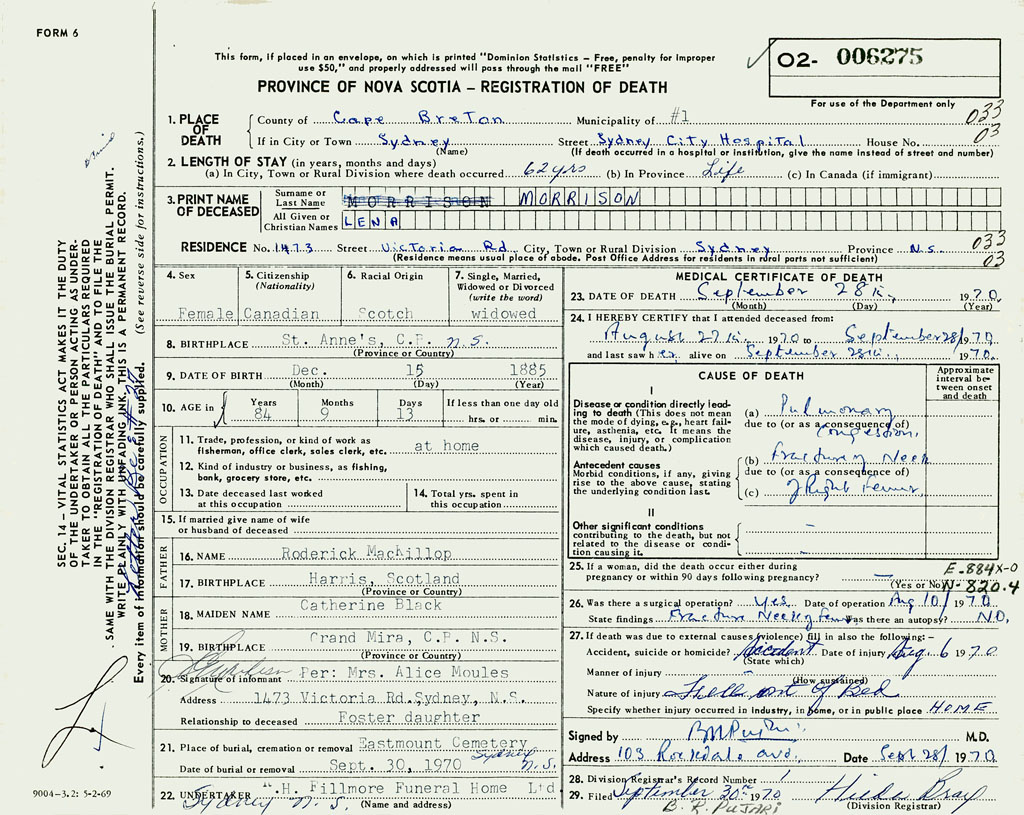 FORM 6
This form, if placed in an envelope, on which is printed "Dominion Statistics – Free, penalty for improper
use $50," and properly addressed will pass through the mail "FREE"
02- 006275
PROVINCE OF NOVA SCOTIA – REGISTRATION OF DEATH
For use of the Department only
1. PLACE OF DEATH
County of Cape Breton Municipality of #1 033
If in City or Town Sydney Street Sydney City Hospital House No. 03
(Name) (If death occurred in a hospital or institution, give the name instead of street and number)
2. LENGTH OF STAY (in years, months and days)
(a) In City, Town or Rural Division where death occurred 62 yrs (b) In Province Life (c) In Canada (if immigrant)
3. PRINT NAME OF DECEASED
Surname or Last Name MORRISON MORRISON
All Given or Christian Names LENA
RESIDENCE No. 1473 Street Victoria Rd. City, Town or Rural Division Sydney Province N.S. 033
(Residence means usual place of abode. Post Office Address for residents in rural parts not sufficient) 03
4. Sex
Female
5. Citizenship
(Nationality)
Canadian
6. Racial Origin
Scotch
7. Single, Married,
Widowed or Divorced
(write the word)
widowed
8. BIRTHPLACE St. Anne's, C.B. N.S.
(Province or Country)
9. DATE OF BIRTH Dec. 15 1885
(Month) (Day) (Year)
10. AGE in
Years Months Days If less than one day old
84 9 13 hrs. or min.
OCCUPATION
11. Trade, profession, or kind of work as
fisherman, office clerk, sales clerk, etc. at home
12. Kind of industry or business, as fishing,
bank, grocery store, etc.
13. Date deceased last worked
at this occupation
14. Total yrs. spent in
this occupation
15. If married give name of wife
or husband of deceased
FATHER
16. NAME Roderick MacKillop
17. BIRTHPLACE Harris, Scotland
(Province or Country)
MOTHER
18. MAIDEN NAME Catherine Black
19. BIRTHPLACE Grand Mira, C.B. N.S.
(Province or Country)
20. Signature of informant Per: Mrs. Alice Moules
Address 1473 Victoria Rd. Sydney, N.S.
Relationship to deceased Foster daughter
21. Place of burial, cremation or removal Eastmount Cemetery
Sydney N.S.
Date of burial or removal Sept. 30, 1970
22. UNDERTAKER .H. Fillmore Funeral Home Ltd
Sydney N.S. (Name and address)
MEDICAL CERTIFICATE OF DEATH
23. DATE OF DEATH September 28th, 1970.
(Month) (Day) (Year)
24. I HEREBY CERTIFY that I attended deceased from:
August 27th, 1970 to September 28/1970
and last saw her alive on September 28th, 1970.
CAUSE OF DEATH
Approximate
interval be-
tween onset
and death
I
Disease or condition directly lead-
ing to death (This does not mean
the mode of dying, e.g., heart fail-
ure, asthenia, etc. It means the
disease, injury, or complication
which caused death.)
(a) Pulmonary
due to (or as a consequence of)
Congestion.
Antecedent causes
Morbid conditions, if any, giving
rise to the above cause, stating
the underlying condition last.
(b) Fracture Neck
due to (or as a consequence of)
(c) of Right Femur
II
Other significant conditions
contributing to the death, but not
related to the disease or condi-
tion causing it.
25. If a woman, did the death occur either during
pregnancy or within 90 days following pregnancy?
(Yes or No)
E-884X-0
N-820.4
26. Was there a surgical operation? Yes Date of operation Aug 10/1970
State findings Fracture Neck of Femur Was there an autopsy? NO.
27. If death was due to external causes (violence) fill in also the following:–
Accident, suicide or homicide? Accident Date of injury Aug. 6 1970
(State which)
Manner of injury
(How sustained)
Nature of injury Fell out of Bed
Specify whether injury occurred in industry, in home, or in public place HOME
Signed by M.D.
Address 103 Rosedale ave. Date Sept 28/1970
28. Division Registrar's Record Number
29. Filed September 30th 1970 Hilda Bray
B. R. PUJARI (Division Registrar)
SEC. 14 – VITAL STATISTICS ACT MAKES IT THE DUTY
OF THE UNDERTAKER OR PERSON ACTING AS UNDER-
TAKER TO OBTAIN ALL THE PARTICULARS REQUIRED
IN THE "REGISTRATION OF DEATH" AND TO FILE THE
SAME WITH THE DIVISION REGISTRAR WHO SHALL ISSUE THE BURIAL PERMIT.
WRITE PLAINLY WITH UNFADING INK. THIS IS A PERMANENT RECORD.
Every item of information should be carefully supplied. (See reverse side for instructions.)
9004-3.2: 5-2-69